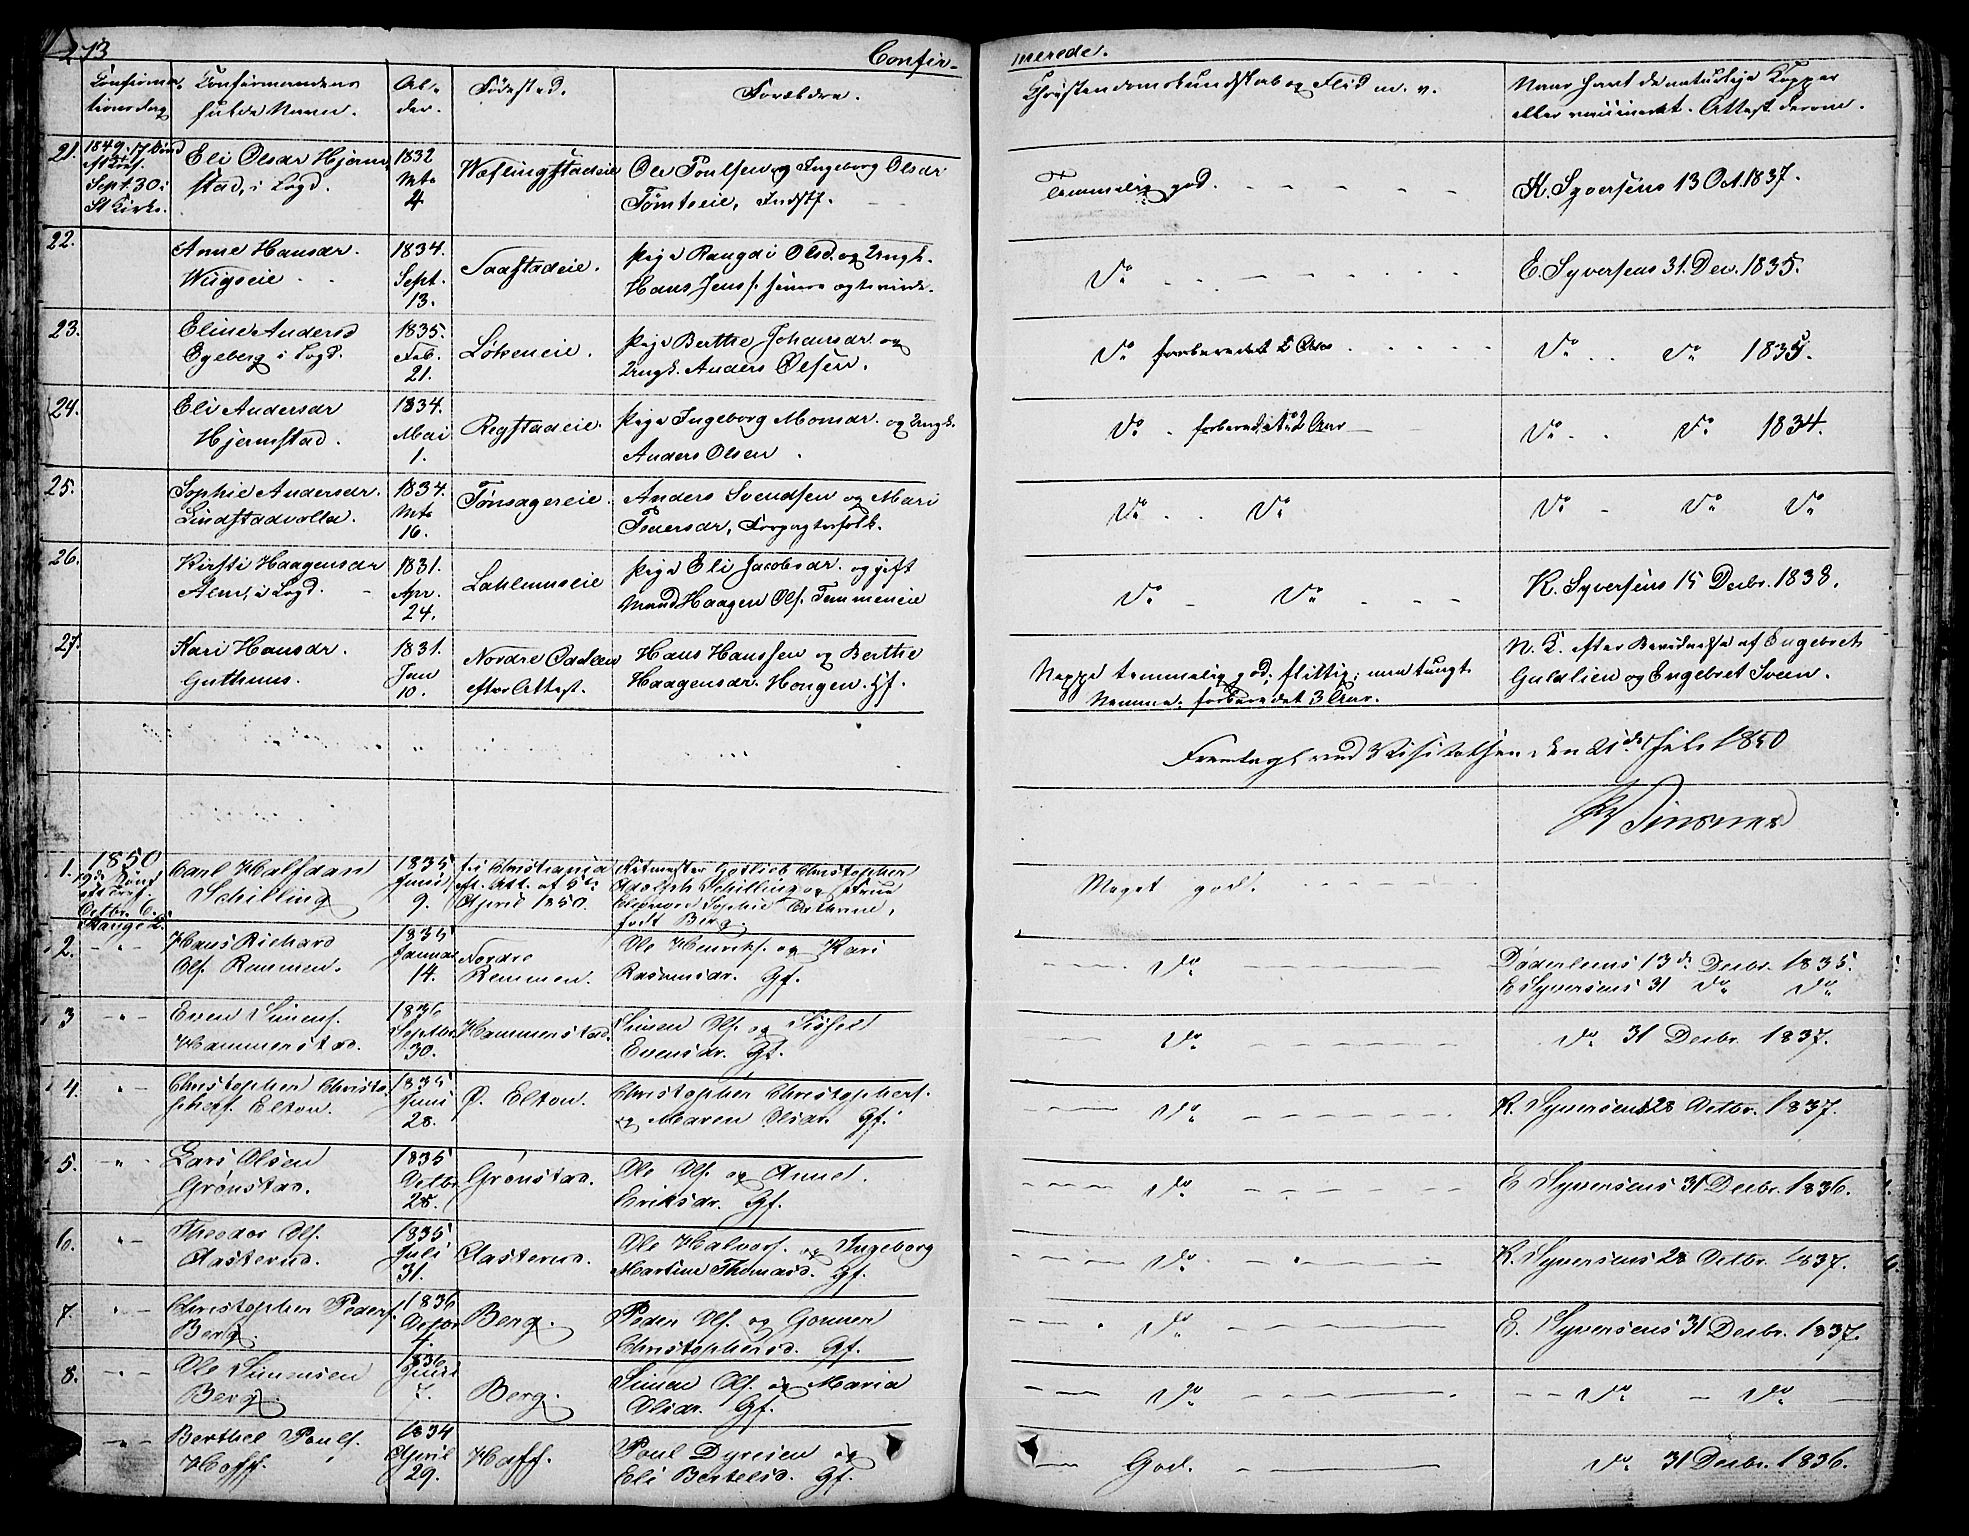 273
Confir-
merede.
Confirma-
tionsdag
Confirmandens
fulde Navn.
Al-
der.
Fødested.
Forældre.
Christendomskundskab og Flid m. v.
Naar havt de naturlige Kopper
eller vaccineret. Attest derom.
21. 1849. 17 Sønd
Sept. 30 i
St Kirke.
Eli Olsdr Hjerm-
stad, i Logd.
1832
Mts
4
Ole Poulsen og Ingeborg Olsdr
Tømteeie, Indstf.
Temmelig god.
K. Syversens 13 Oct. 1837.
22.
Anne Hansdr.
Wiigseie
1834.
Sept.
13.
Saastadeie.
Pige Rangdi Olsd. og Ungk.
Hans Jenss.
Do
E. Syversens 31. Dec. 1835.
23.
Eline Andersd
Egeberg i Logd.
1835.
Feb.
21.
Løkeneie.
Pige Berthe Johansdr. og
Ungk. Anders Olsen.
Do forberedet 2 Aar
Do Do 1835.
24.
Eli Andersdr
Hjermstad.
1834.
Mai
1.
Regstadeie.
Pige Ingeborg Monsdr. og Ungk.
Anders Olsen
Do forberedet 2 Aar
Do Do 1834.
25.
Sophie Andersdr.
Lindstadvolla.
1834.
Mts
16.
Tønsagereie.
Anders Svendsen og Mari
Pedersdr, Forpagterfolk.
Do Do
Do Do Do
26.
Kirsti Haagensdr
Alm, i Logd.
1831.
Apr.
24.
Lahlumseie
Pige Eli Jacobsdr. og gift
Mand Haagen Ols. Temmeneie
Do Do
K. Syversens 15 Decbr. 1838.
27.
Kari Hansdr.
Guthuus.
1831.
Jan
10.
Nordre Oddeen
efter Attest.
Hans Hanssen og Berthe
Haagensdr. Hongen. Hf.
Neppe temmelig god; flittig; men tungt
Nemme. forberedet 3 Aar.
N. K. efter Bevidnelse af Engebret
Guldlien og Engebret Sveen.
Fremlagt ved Visitatsen den 21de Juli 1850
1. 1850
19de Sønd
eft Tref.
Octbr. 6.
Stange K.
Carl Halfdan
Schilling
1835
Juni
9.
f. i Christiania
eft. Att. af 5te
April 1850.
Ritmester Gotlieb Christopher
Adolph Schilling og Frue
Eleonore Sophie Cathrine,
født Berg.
Meget god.
2.
Hans Richard
Ols. Remmen.
1835
Januar
14.
Nordre
Remmen.
Ole Henriks. og Kari
Rasmusdr. Gf.
Do
Døderleins 13de Decbr. 1835.
E Syversens 31 Do Do
3
Even Simens.
Hammerstad.
1836
Septbr
30.
Hammerstad.
Simen Ols. og Sidsel
Evensdr. Gf.
Do
do 31 Decbr. 1837.
4.
Christopher Christo-
phers. Elton.
1835
Juni
28.
Ø. Elton.
Christopher Christophers.
og Maren Olsdr. Gf.
Do
K. Syversens 28 Octbr. 1837.
5.
Lars Olsen
Grønstad.
1835
Octbr
28.
Grønstad.
Ole Ols. og Anne
Eriksdr. Gf.
Do
E Syversens 31 Decbr. 1836.
6.
Theodor Ols.
Aasterud.
1835
Juli
31.
Aasterud.
Ole Halvors. og Ingeborg
Martine Thomasd. Gf.
Do
K. Syversens 28 Octbr. 1837.
7.
Christopher Peders.
Berg.
1836
Octbr
4.
Berg.
Peder Ols. og Gonner
Christophersd. Gf.
Do
E. Syversens 31 Decbr. 1837.
8.
Ole Simensen
Berg.
1836
Juni
7.
Berg.
Simen Ols. og Maria
Olsdr. Gf.
Do
Do Do
Berthel Pouls.
Hoff.
1834
April
29.
Hoff.
Poul Dyresen og
Eli Bertelsd. Gf.
God.
do 31 Decbr. 1836.